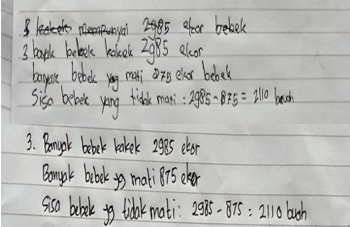 kakek mempunyai 2985 ekor bebek
3 banyak bebek kakek 2985 ekor
banyak bebek yg mati 875 ekor bebek
Sisa bebek yang tidak mati : 2985 - 875 = 2110 buah
3. Banyak bebek kakek 2985 ekor
Banyak bebek yg mati 875 ekor
Sisa bebek yg tidak mati : 2985 - 875 = 2110 buah